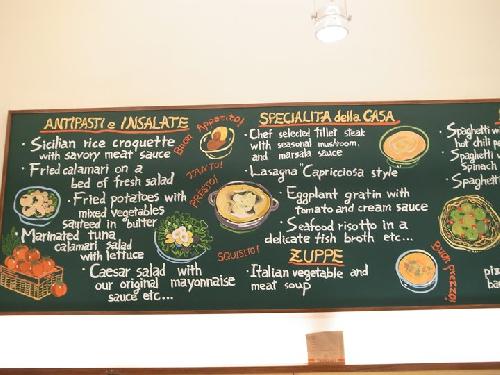 ANTIPASTI e INSALATE
• Sicilian rice croquette
with savory meat sauce
• Fried calamari on a
bed of fresh salad
• Fried potatoes with
mixed vegetables
sauteed in "butter
• Marinated tuna
calamari salad
with lettuce
• Caesar salad with
our original mayonnaise
sauce etc...
Buon Appetito!
TANTO!
PRESTO!
SQUISITO!
SPECIALITA della CASA
• Chef selected fillet steak
with seasonal mushroom,
and marsala sauce
• Lasagna "Capricciosa" style
• Eggplant gratin with
tomato and cream sauce
• Seafood risotto in a
delicate fish broth etc...
ZUPPE
• Italian vegetable and
meat soup
Buon prezzo!
• Spaghetti
hot chili
• Spaghetti
spinach
• Spaghetti